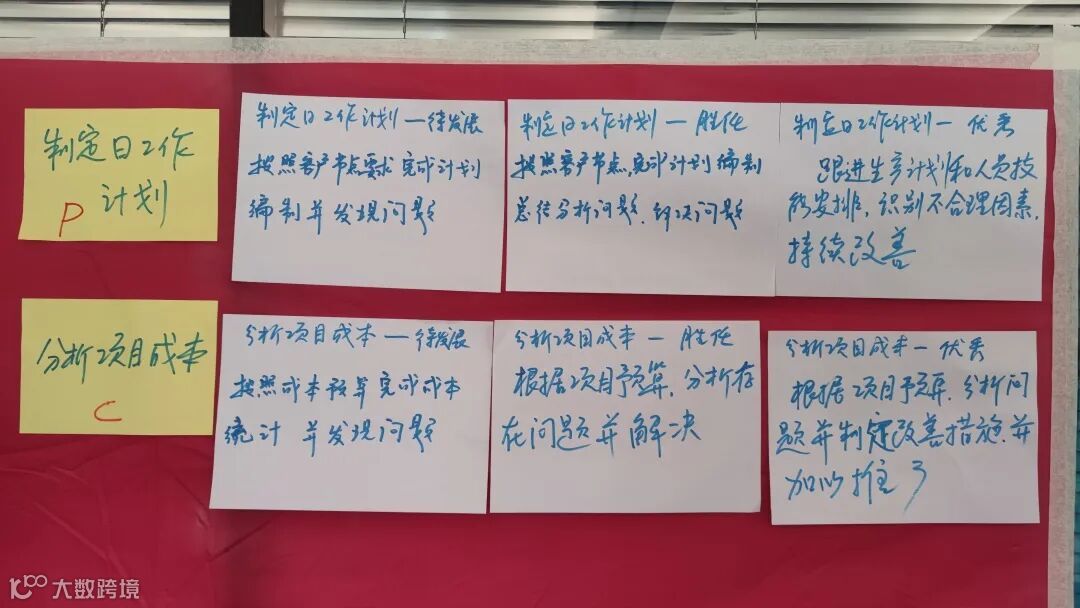 制定日工作
计划
P
制定日工作计划一待发展
按照客户节点要求完成计划
编制并发现问题
制定日工作计划一胜任
按照客户节点,完成计划编制
总结分析问题.解决问题
制定日工作计划一优秀
跟进生产计划和人员技
能安排.识别不合理因素.
持续改善
分析项目成本
C
分析项目成本一待发展
按照成本预算完成成本
统计 并发现问题
分析项目成本一胜任
根据项目预算.分析存
在问题并解决
分析项目成本一优秀
根据项目预算.分析问
题并制定改善措施.并
加以推
大数跨境